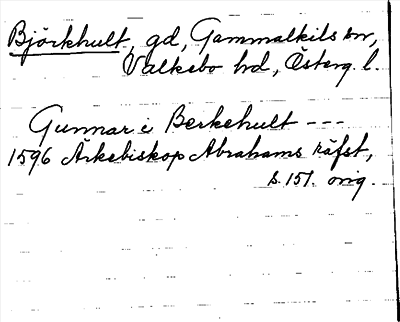 Björkhult, gd, Gammalkils sn,
Valkebo hd, Österg. l.
Gunnar i Berkehult ---
1596 Ärkebiskop Abrahams räfst,
s. 151. orig.